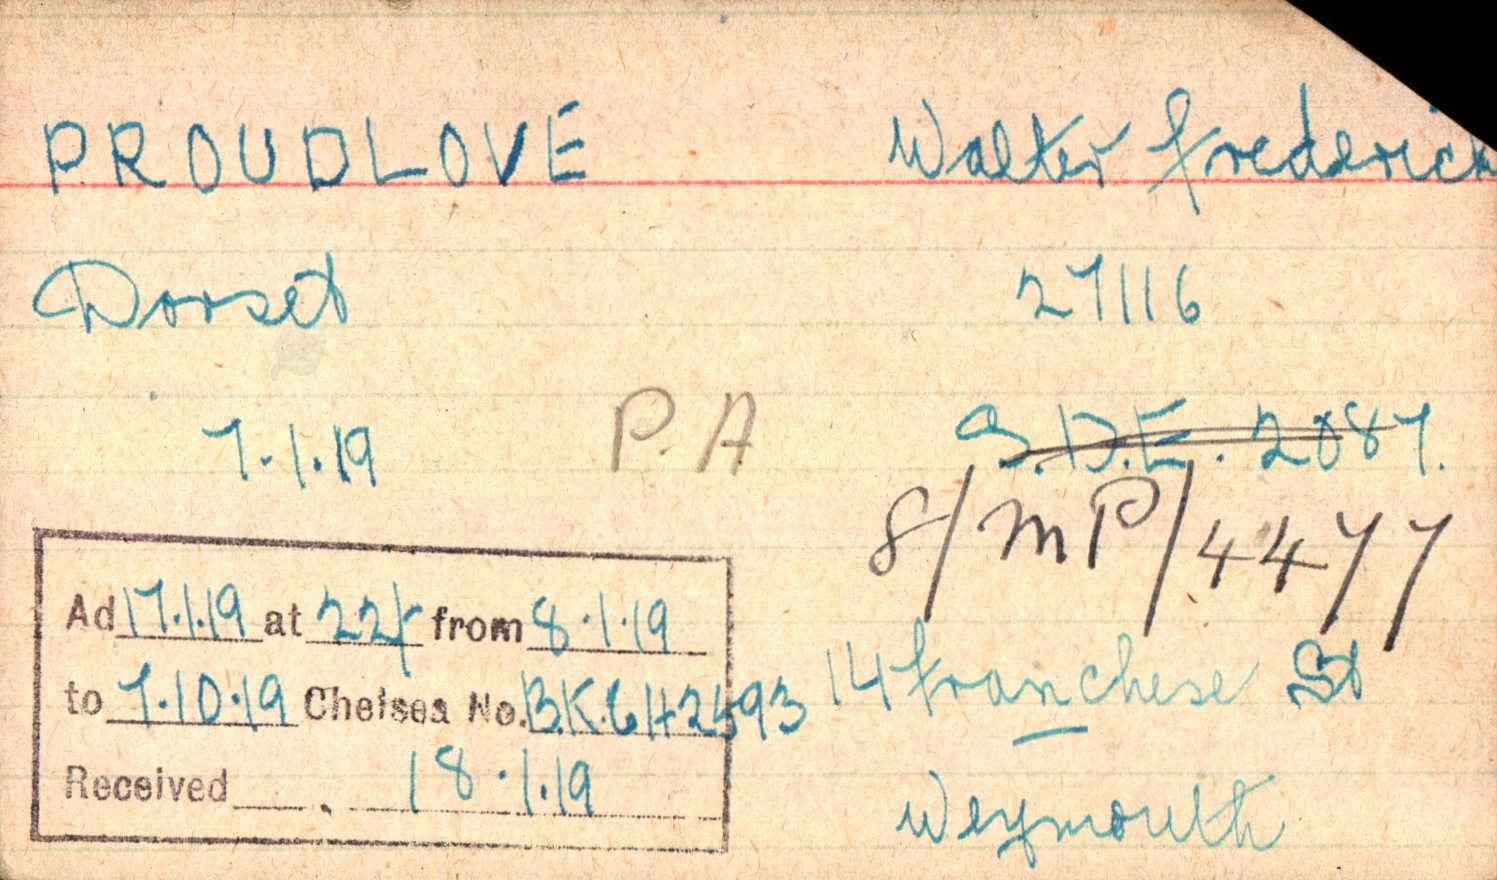 PROUDLOVE Walter Frederick
Dorset 27116
7.1.19 P.A S.D.E. 2087.
8/MP/4477
Ad 17.1.19 at 22/- from 8.1.19
to 7.10.19 Chelsea No. 
14 Franchese St
Received 18.1.19
Weymouth